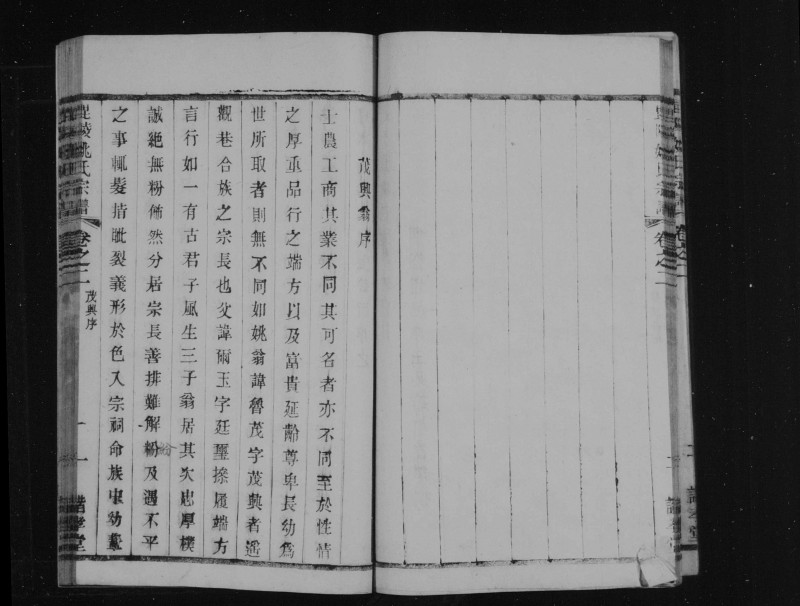 茂興翁序
士農工商其業不同其可名者亦不同至於性情
之厚重品行之端方以及富貴延齡尊卑長幼為
世所取者則無不同如姚翁諱魯茂字茂興者遥
觀巷合族之宗長也父諱爾玉字廷璽操履端方
言行如一有古君子風生三子翁居其次忠厚樸
誠絶無粉飾然分居宗長善排難解紛及遇不平
之事輒髮指眦裂義形於色入宗祠命族中幼輩
毘陵姚氏宗譜
卷之二
茂興序
卷之二
卷之二